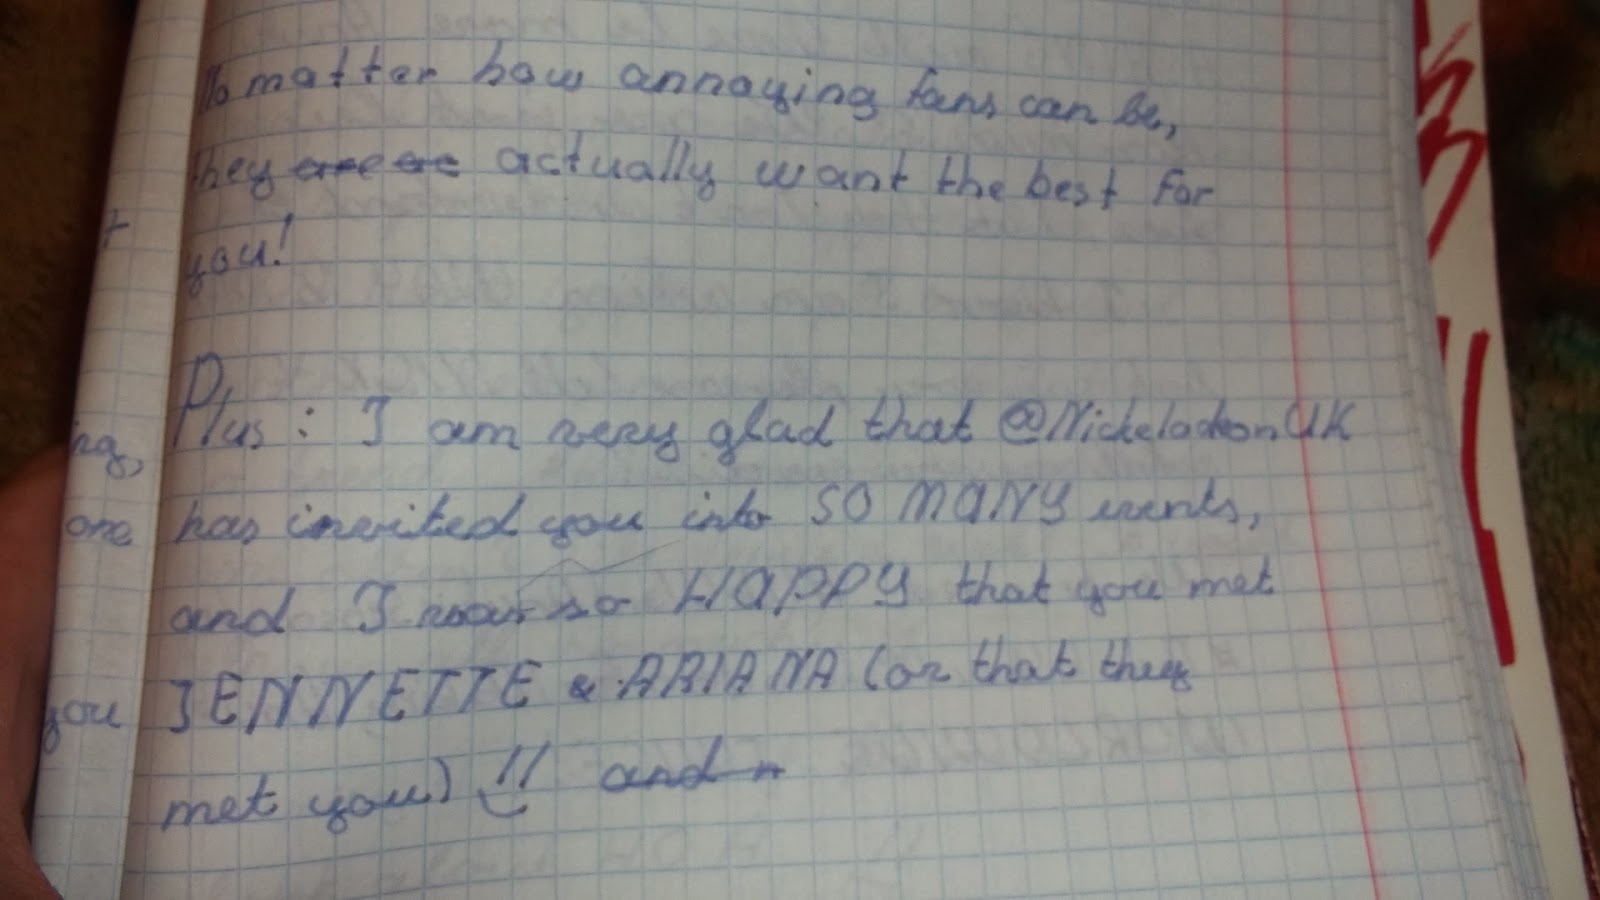 No matter how annoying fans can be,
they are are actually want the best for
you!
Plus: I am very glad that @NickelodeonUK
has invited you into SO MANY events,
and I was so HAPPY that you met
JENNETTE & ARIANA (or that they
met you) !! and
ng,
one
you